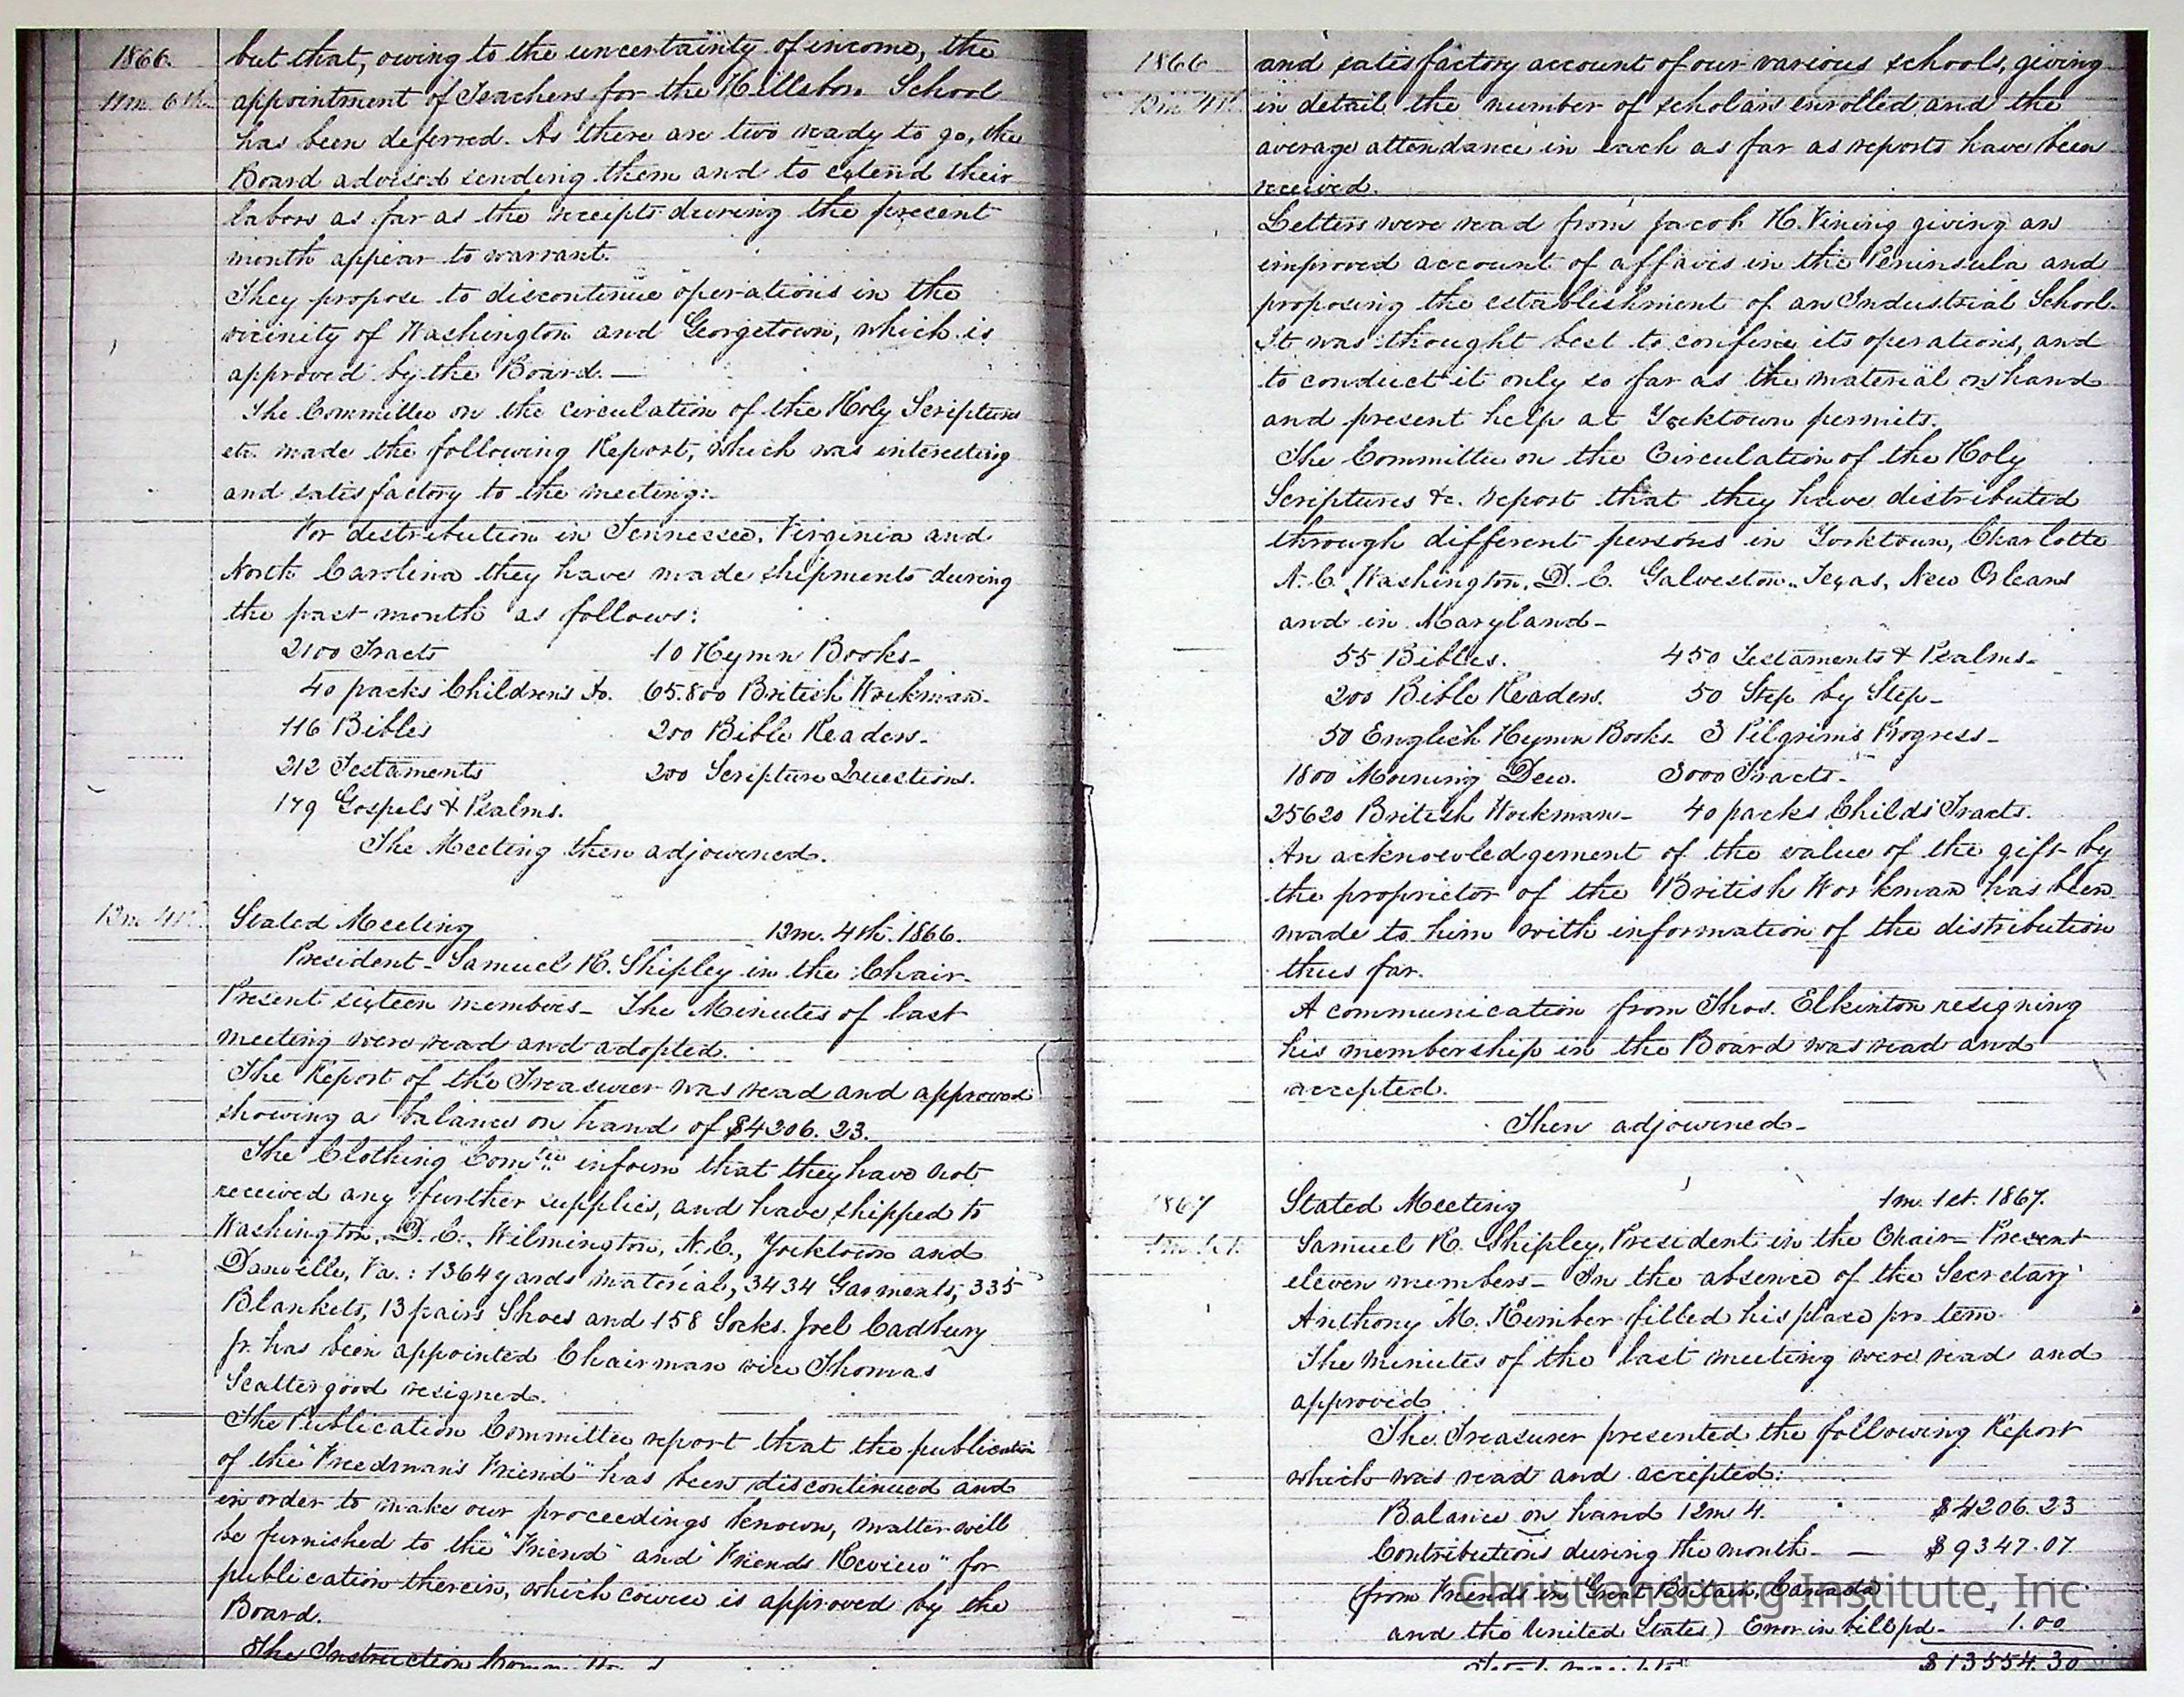 1866.
11m. 6th.
but that, owing to the uncertainty of income, the
appointment of Teachers for the Hillsboro School
has been deferred. As there are two ready to go, the
Board advised sending them and to extend their
labors as far as the receipts during the present
month appear to warrant.
They propose to discontinue operations in the
vicinity of Washington and Georgetown, which is
approved by the Board. —
The Committee on the circulation of the Holy Scriptures
etc. made the following Report, which was interesting
and satisfactory to the meeting:-
For distribution in Tennessee, Virginia and
North Carolina they have made shipments during
the past month as follows:
2100 Tracts 10 Hymn Books-
40 packs Children's Do. 65.800 British Workman-
116 Bibles 200 Bible Readers-
212 Testaments 200 Scripture Questions.
179 Gospels & Psalms.
The Meeting then adjourned.
12m. 4th.
Stated Meeting 12m. 4th. 1866.
President - Samuel R. Shipley in the Chair-
Present sixteen members- The Minutes of last
meeting were read and adopted.
The Report of the Treasurer was read and approved
showing a balance on hand of $4206. 23.
The Clothing Com^tee inform that they have not
received any further supplies, and have shipped to
Washington, D. C., Wilmington, N. C., Yorktown and
Danville, Va.: 1364 yards material, 3434 Garments, 335
Blankets, 13 pairs Shoes and 158 Socks. Joel Cadbury
Jr. has been appointed Chairman vice Thomas
Scattergood resigned.
The Publication Committee report that the publication
of the "Freedman's Friend" has been discontinued and
in order to make our proceedings known, matter will
be furnished to the "Friend" and "Friends Review" for
publication therein, which course is approved by the
Board.
The Instruction Committee
1866
12m 4th.
and satisfactory account of our various schools, giving
in detail the number of scholars enrolled and the
average attendance in each as far as reports have been
received.
Letters were read from Jacob H. Vining giving an
improved account of affairs in the Peninsula and
proposing the establishment of an Industrial School.
It was thought best to confine its operations, and
to conduct it only so far as the material on hand
and present help at Yorktown permits.
The Committee on the Circulation of the Holy
Scriptures &c. report that they have distributed
through different persons in Yorktown, Charlotte
N. C. Washington, D. C. Galveston, Texas, New Orleans
and in Maryland-
55 Bibles. 450 Testaments & Psalms-
200 Bible Readers. 50 Step by Step-
50 English Hymn Books- 3 Pilgrim's Progress-
1800 Morning Dew. 3000 Tracts-
25620 British Workman- 40 packs Childs' Tracts.
An acknowledgement of the value of the gift by
the proprietor of the British Workman has been
made to him with information of the distribution
thus far.
A communication from Thos. Elkinton resigning
his membership in the Board was read and
accepted.
Then adjourned-
1867
1m. 1st.
Stated Meeting 1m. 1st. 1867.
Samuel R. Shipley, President in the Chair- Present
eleven members- In the absence of the Secretary
Anthony M. Kimber filled his place pro tem
The minutes of the last meeting were read and
approved.
The Treasurer presented the following Report
which was read and accepted:
Balance on hand 12m 4. $4206.23
Contributions during the month- — $9347.07
(from Friends in Great Britain, Canada
and the United States) Error in bill pd- 1.00
$13554.30
Christiansburg Institute, Inc